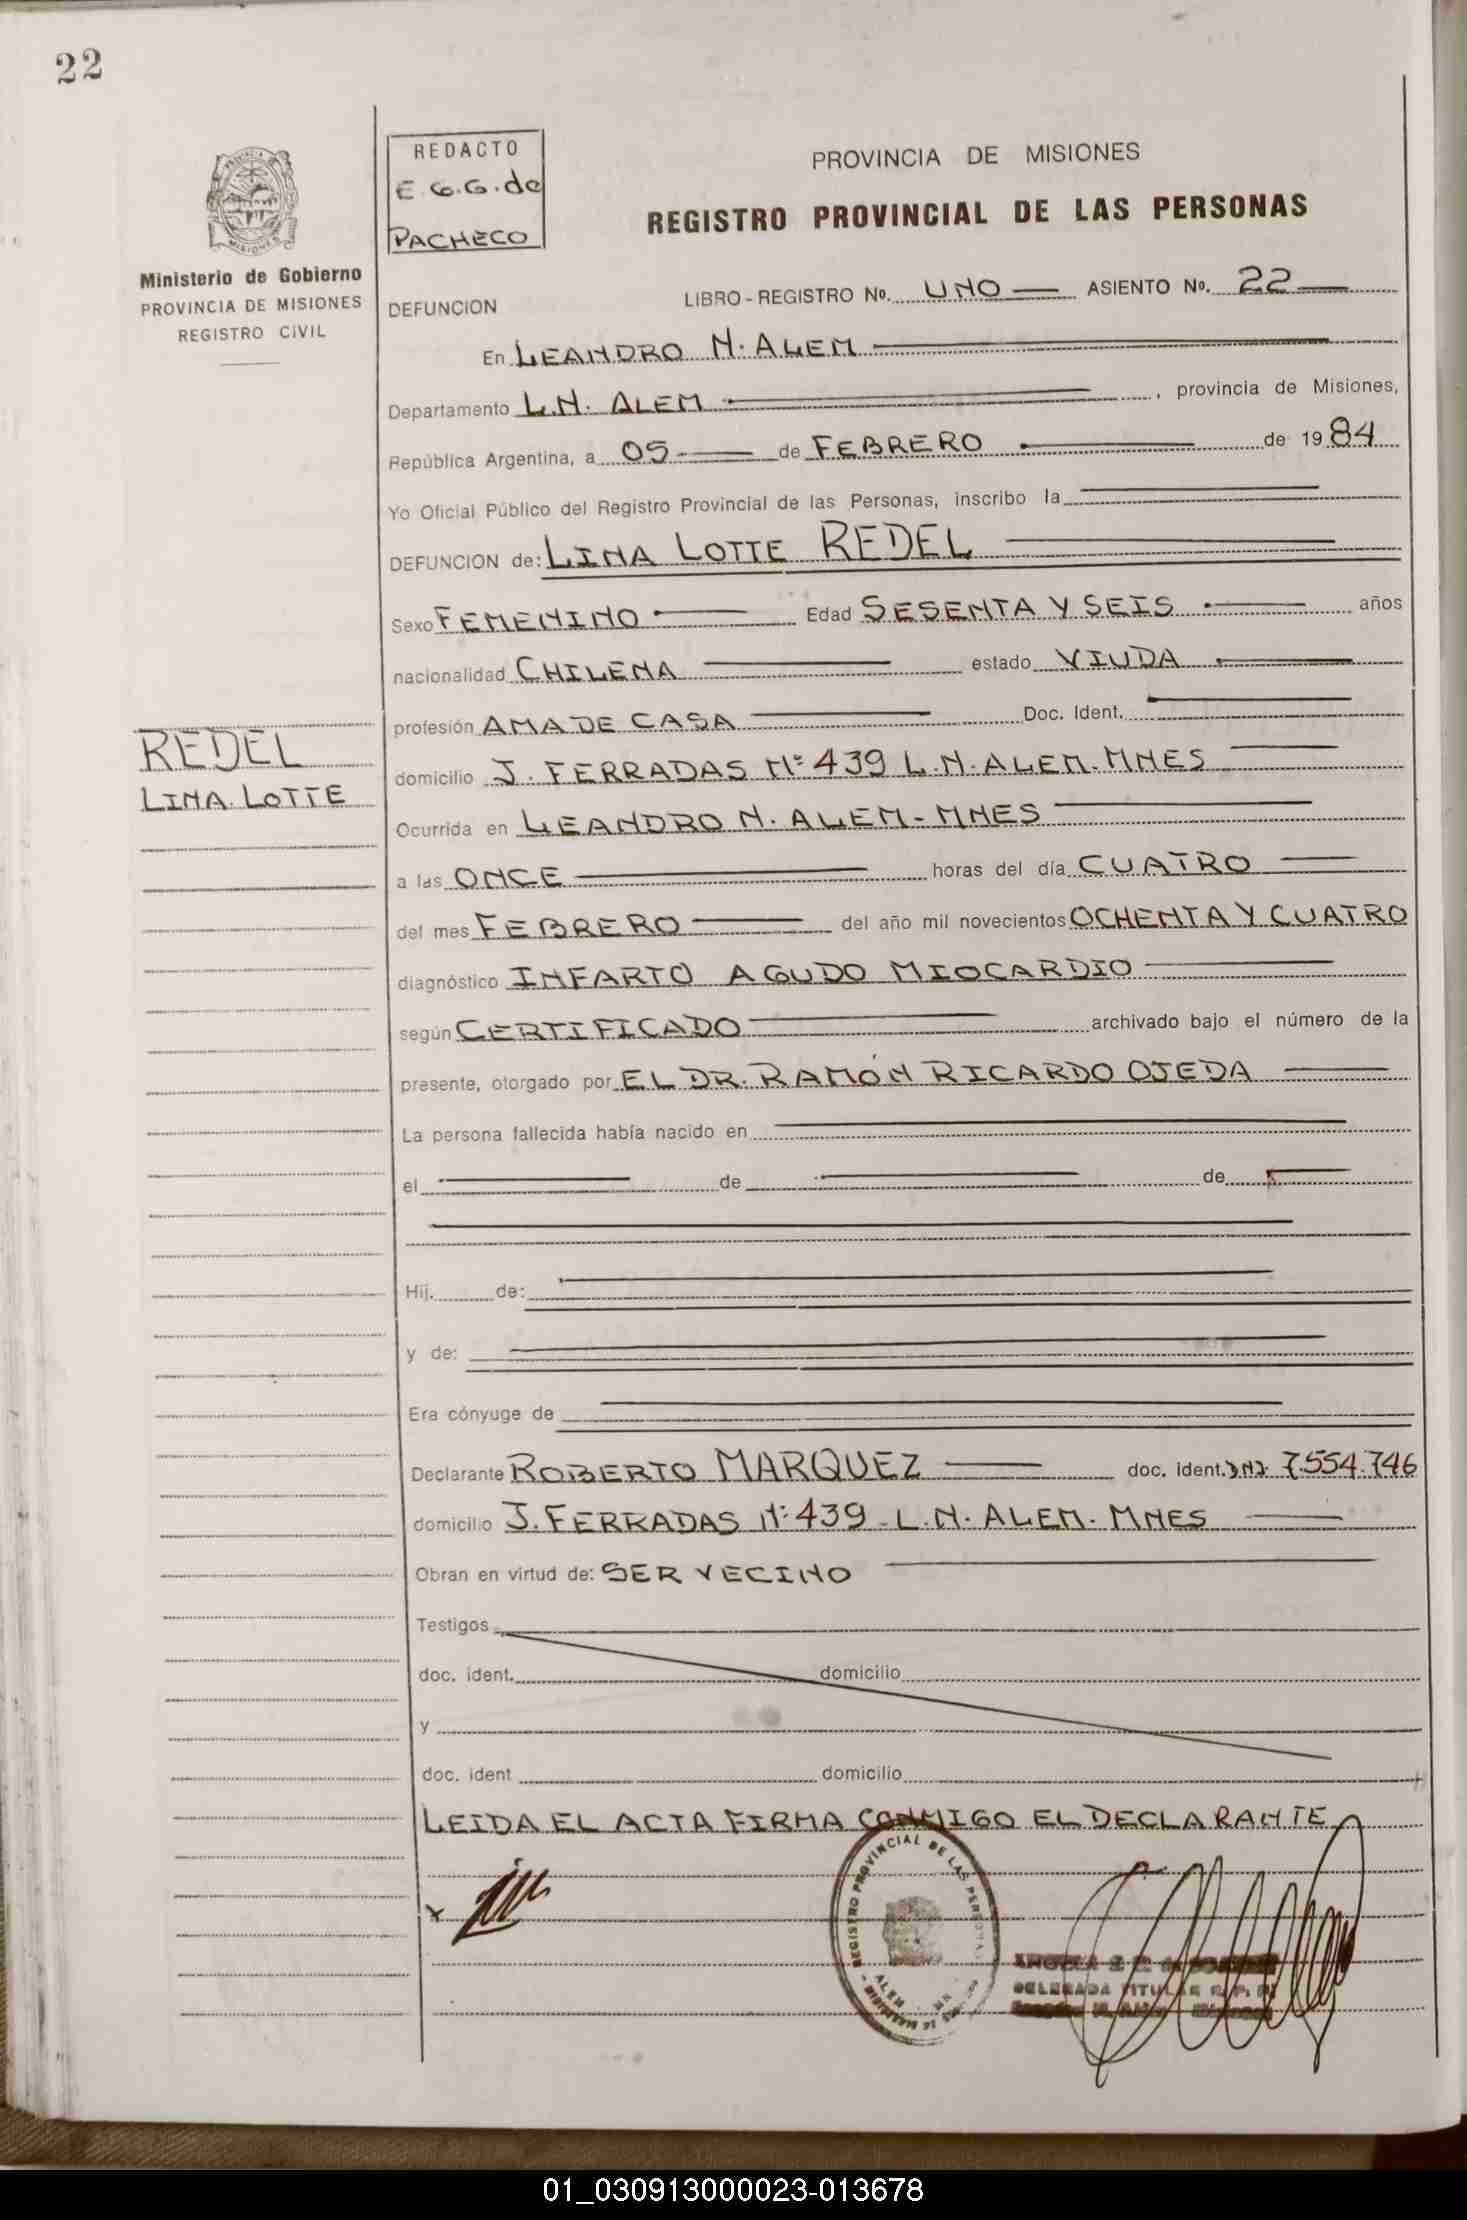 22
REDACTO
E.G.G. de
PACHECO
PROVINCIA DE MISIONES
REGISTRO PROVINCIAL DE LAS PERSONAS
PROVINCIA DE
MISIONES
Ministerio de Gobierno
PROVINCIA DE MISIONES
REGISTRO CIVIL
DEFUNCION LIBRO-REGISTRO No. UNO ASIENTO No. 22
En LEANDRO N. ALEM
Departamento L.N. ALEM, provincia de Misiones,
República Argentina, a 05 de FEBRERO de 1984
Yo Oficial Público del Registro Provincial de las Personas, inscribo la
DEFUNCION de: LINA LOTTE REDEL
Sexo FEMENINO Edad SESENTA Y SEIS años
nacionalidad CHILENA estado VIUDA
profesión AMA DE CASA Doc. Ident.
REDEL
LINA LOTTE
domicilio J. FERRADAS Nº 439 L.N. ALEM. MNES
Ocurrida en LEANDRO N. ALEM - MNES
a las ONCE horas del día CUATRO
del mes FEBRERO del año mil novecientos OCHENTA Y CUATRO
diagnóstico INFARTO AGUDO MIOCARDIO
según CERTIFICADO archivado bajo el número de la
presente, otorgado por EL DR. RAMÓN RICARDO OJEDA
La persona fallecida había nacido en
el de de
Hij. de:
y de:
Era cónyuge de
Declarante ROBERTO MARQUEZ doc. ident. DNI. 7.554.746
domicilio J. FERRADAS Nº 439 - L.N. ALEM. MNES
Obran en virtud de: SER VECINO
Testigos
doc. ident. domicilio
y
doc. ident domicilio
LEIDA EL ACTA FIRMA CONMIGO EL DECLARANTE
x
REGISTRO PROVINCIAL DE LAS PERSONAS
ALEM
DELEGADA TITULAR R. P. P.
01_030913000023-013678